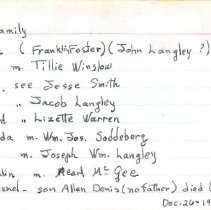 amily
( Franklin Foster) (John Langley ?)
m. Tillie Winslow
see Jesse Smith
" Jacob Langley
" Lizette Warren
da m. Wm. Jas. Soddeberg
m. Joseph Wm. Langley
lin m. Pearl McGee
- son Allen Denis (no Father) died (
Dec-26-19